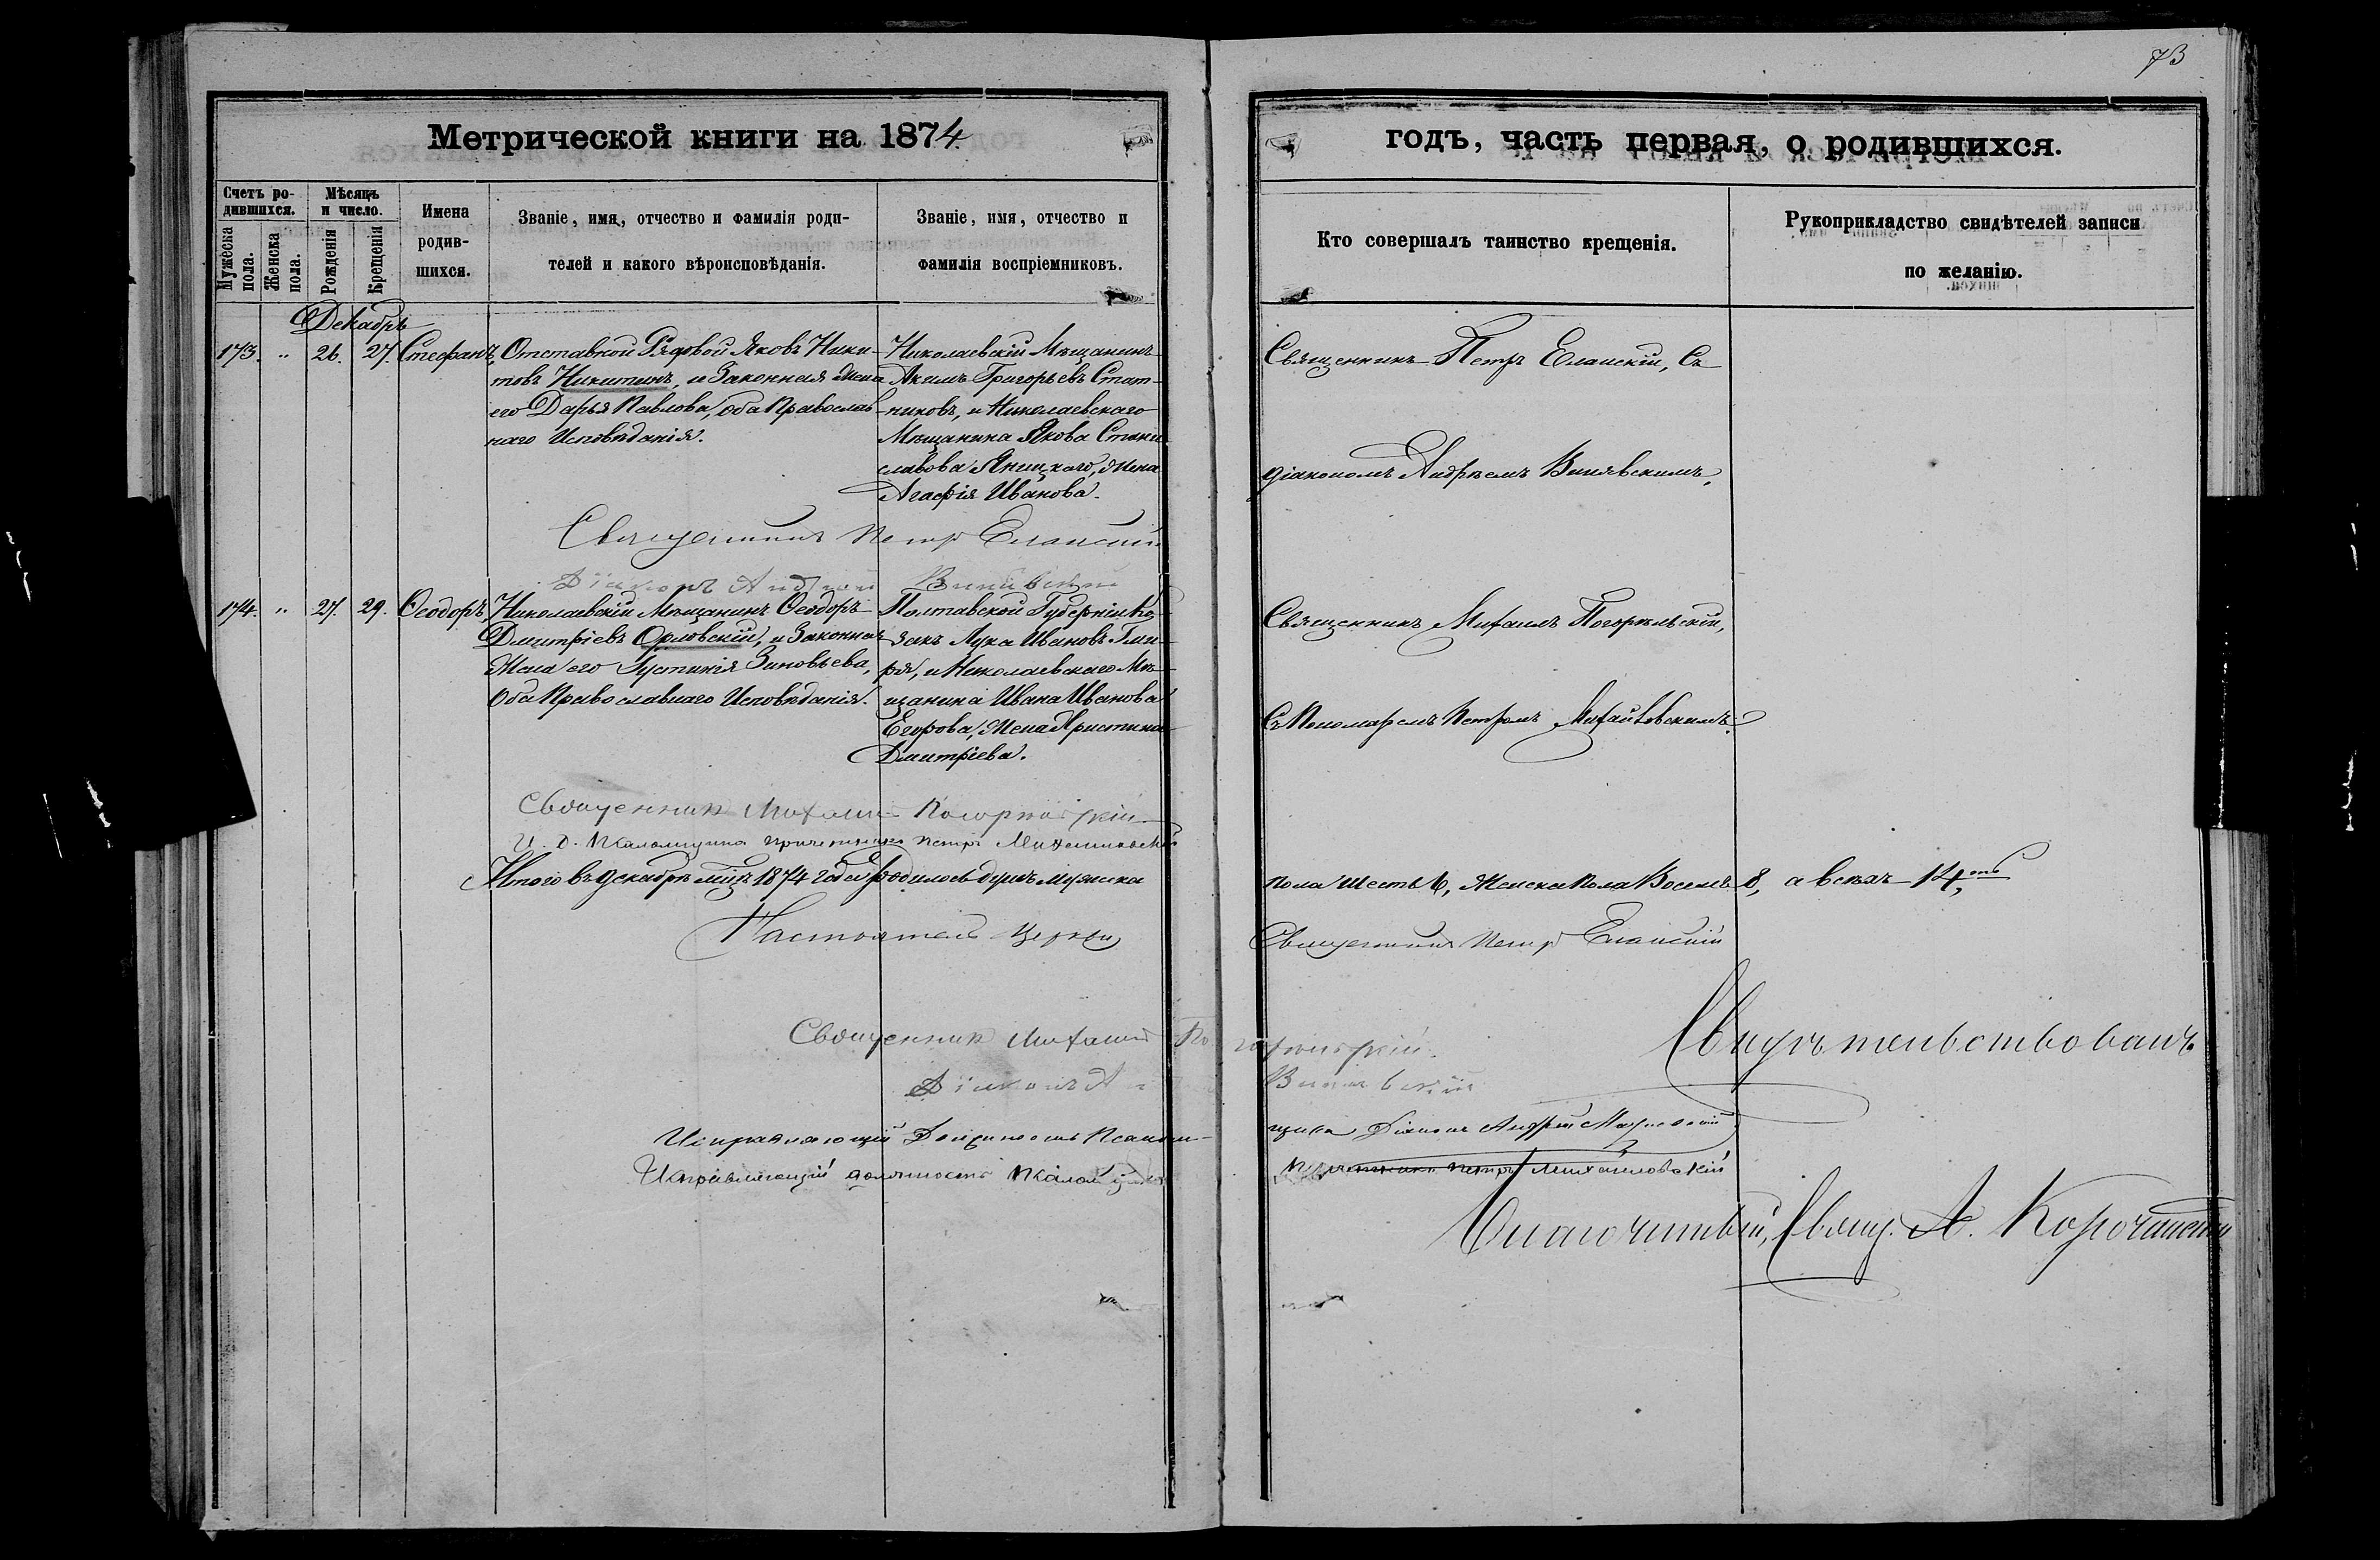 73
Метрической книги на 1874
годъ, часть первая, о родившихся.
Счетъ родившихся.
Мужеска пола.
Женска пола.
Мѣсяцъ и число.
Рожденія
Крещенія
Имена родив-
шихся.
Званіе, имя, отчество и фамилія роди-
телей и какого вѣроисповѣданія.
Званіе, имя, отчество и
фамилія воспріемниковъ.
Кто совершалъ таинство крещенія.
Рукоприкладство свидѣтелей записи
по желанію.
Декабрь
173. " 26. 27. Стефанъ,
Отставной Рядовой Яковъ Ники-
товъ Никитинъ, и Законная Жена
его Дарья Павлова, оба Православ-
наго Исповѣданія.
Николаевскій Мѣщанинъ
Акимъ Григорьевъ Стат-
никовъ, и Николаевскаго
Мѣщанина Якова Стани
славова Яницкаго, Жена
Агафія Иванова.
Священникъ Петръ Еланскій, Съ
діакономъ Андреемъ Винявскимъ,
Священникъ Петръ Еланскій
Діаконъ Андрей Винявскій
174. " 27. 29. Ѳеодоръ,
Николаевскій Мѣщанинъ Ѳеодоръ
Дмитріевъ Орловскій, и Законная
Жена его Іустинія Зиновьева,
Оба Православнаго Исповѣданія.
Полтавской Губерніи Ко-
закъ Лука Ивановъ
и Николаевскаго Мѣ-
щанина Ивана Иванова
Егорова, Жена Христина
Дмитріева.
Священникъ Михаилъ Погорѣльскій,
Съ Пономаремъ Петромъ Михайловскимъ.
Священникъ Михаилъ Погорѣльскій
И. д. Псаломщика причетникъ Петръ Михайловскій
Итого въ декабрѣ мцѣ 1874 года родилось душъ мужска
пола Шесть 6, Женска Пола Восемь 8, а всѣхъ 14,
Настоятель Церкви Священникъ Петръ Еланскій
Священникъ Михаилъ Погорѣльскій.
Діаконъ Винявскій
Исправляющій Должность Псаломщика Діаконъ Андрей
Исправляющій должность Псаломщика Причетникъ Петръ Михайловскій
Свидѣтельствовалъ
Благочинный, Свящ. А. Корочанскій